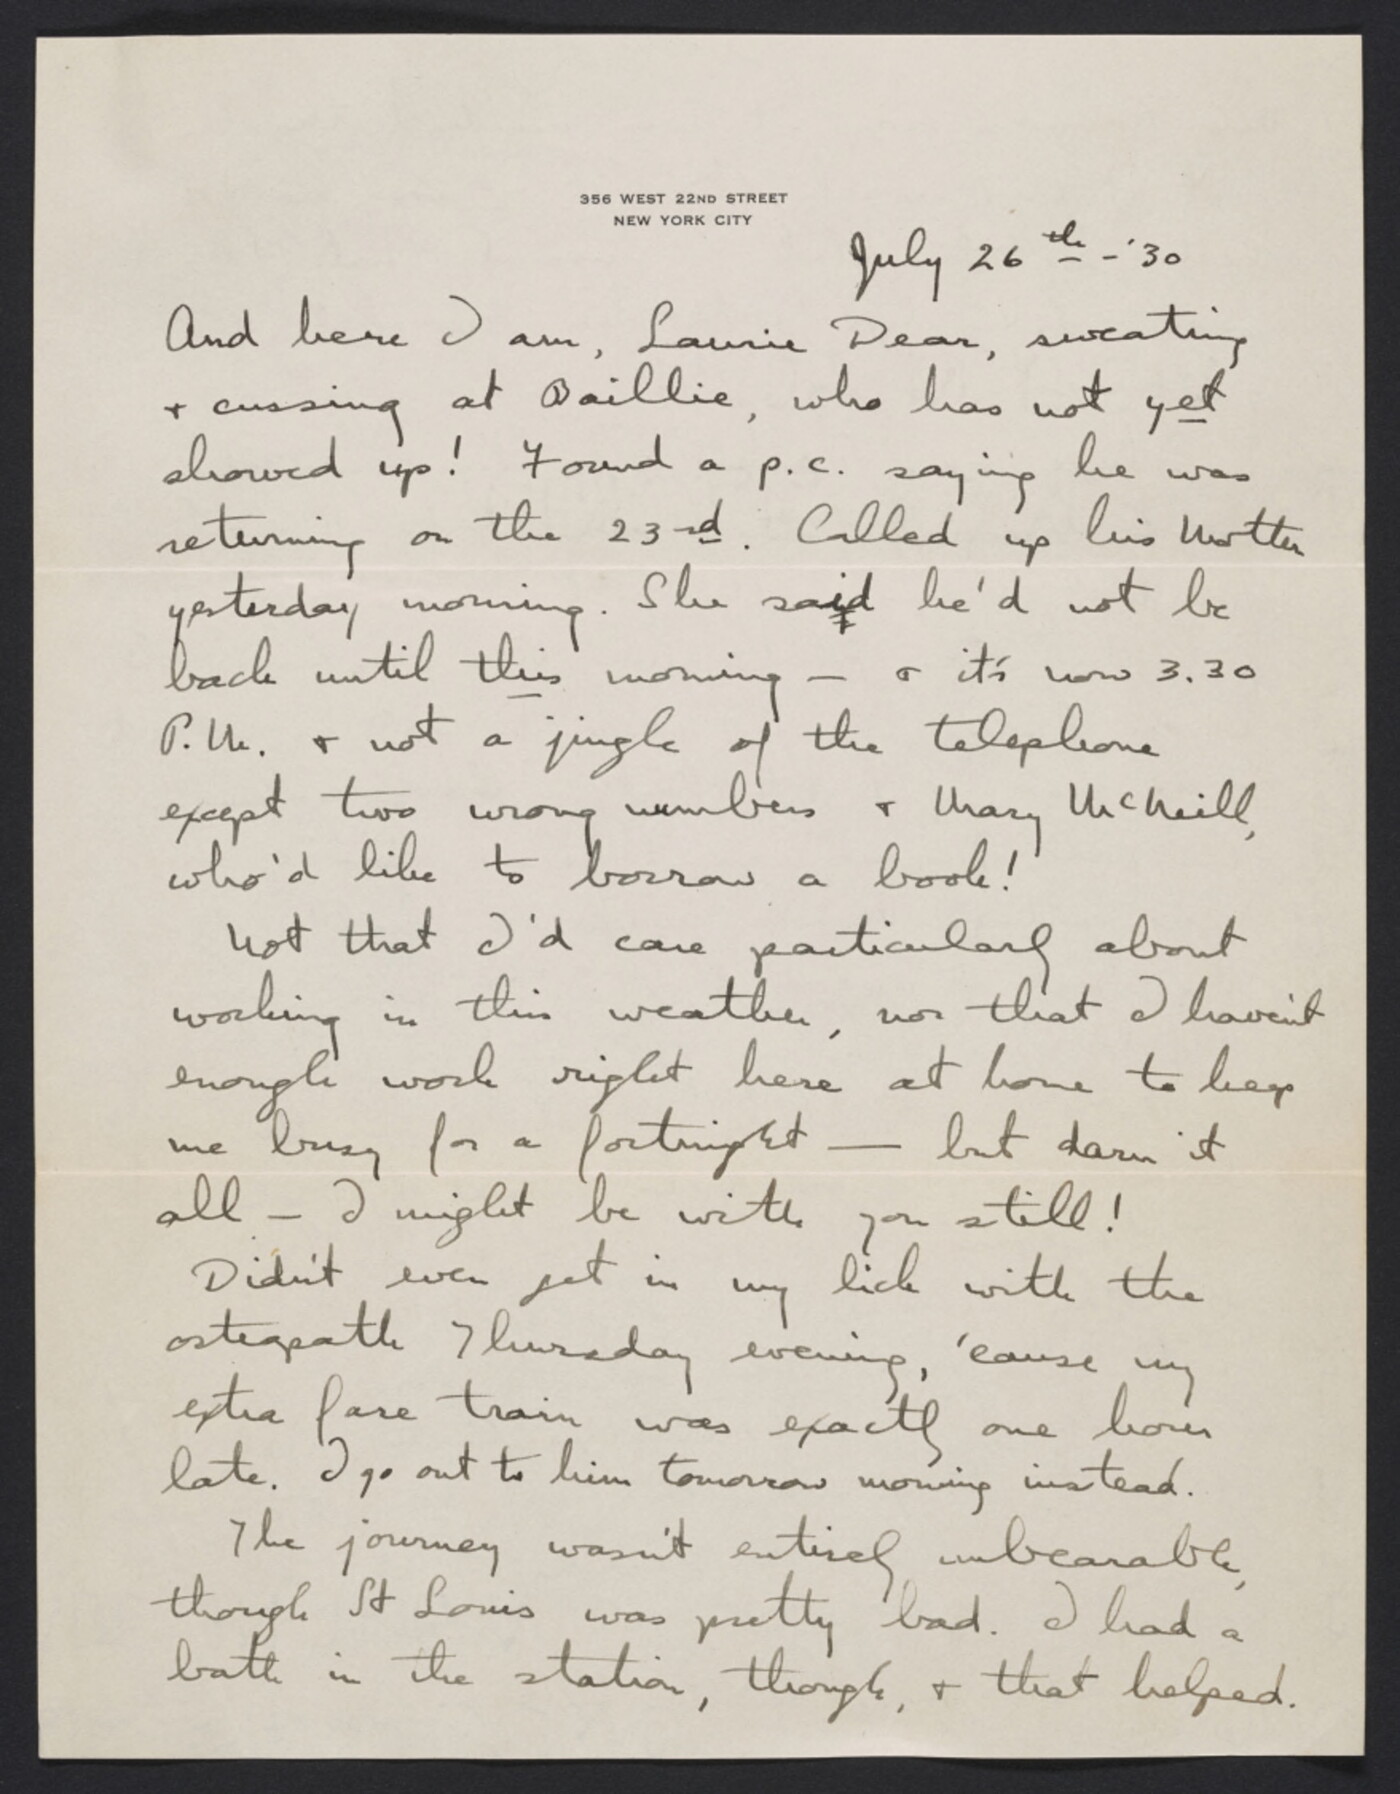 356 WEST 22ND STREET
NEW YORK CITY
July 26th - '30
And here I am, Laurie Dear, sweating
+ cussing at Baillie, who has not yet
showed up! Found a p.c. saying he was
returning on the 23rd. Called up his Mother
yesterday morning. She said he'd not be
back until this morning — + it's now 3.30
P.M. + not a jingle of the telephone
except two wrong numbers + Mary McNeill,
who'd like to borrow a book!
Not that I'd care particularly about
working in this weather, nor that I haven't
enough work right here at home to keep
me busy for a fortnight — but darn it
all — I might be with you still!
Didn't even get in my lick with the
osteopath Thursday evening, 'cause my
extra fare train was exactly one hour
late. I go out to him tomorrow morning instead.
The journey wasn't entirely unbearable,
though St Louis was pretty bad. I had a
bath in the station, though, + that helped.